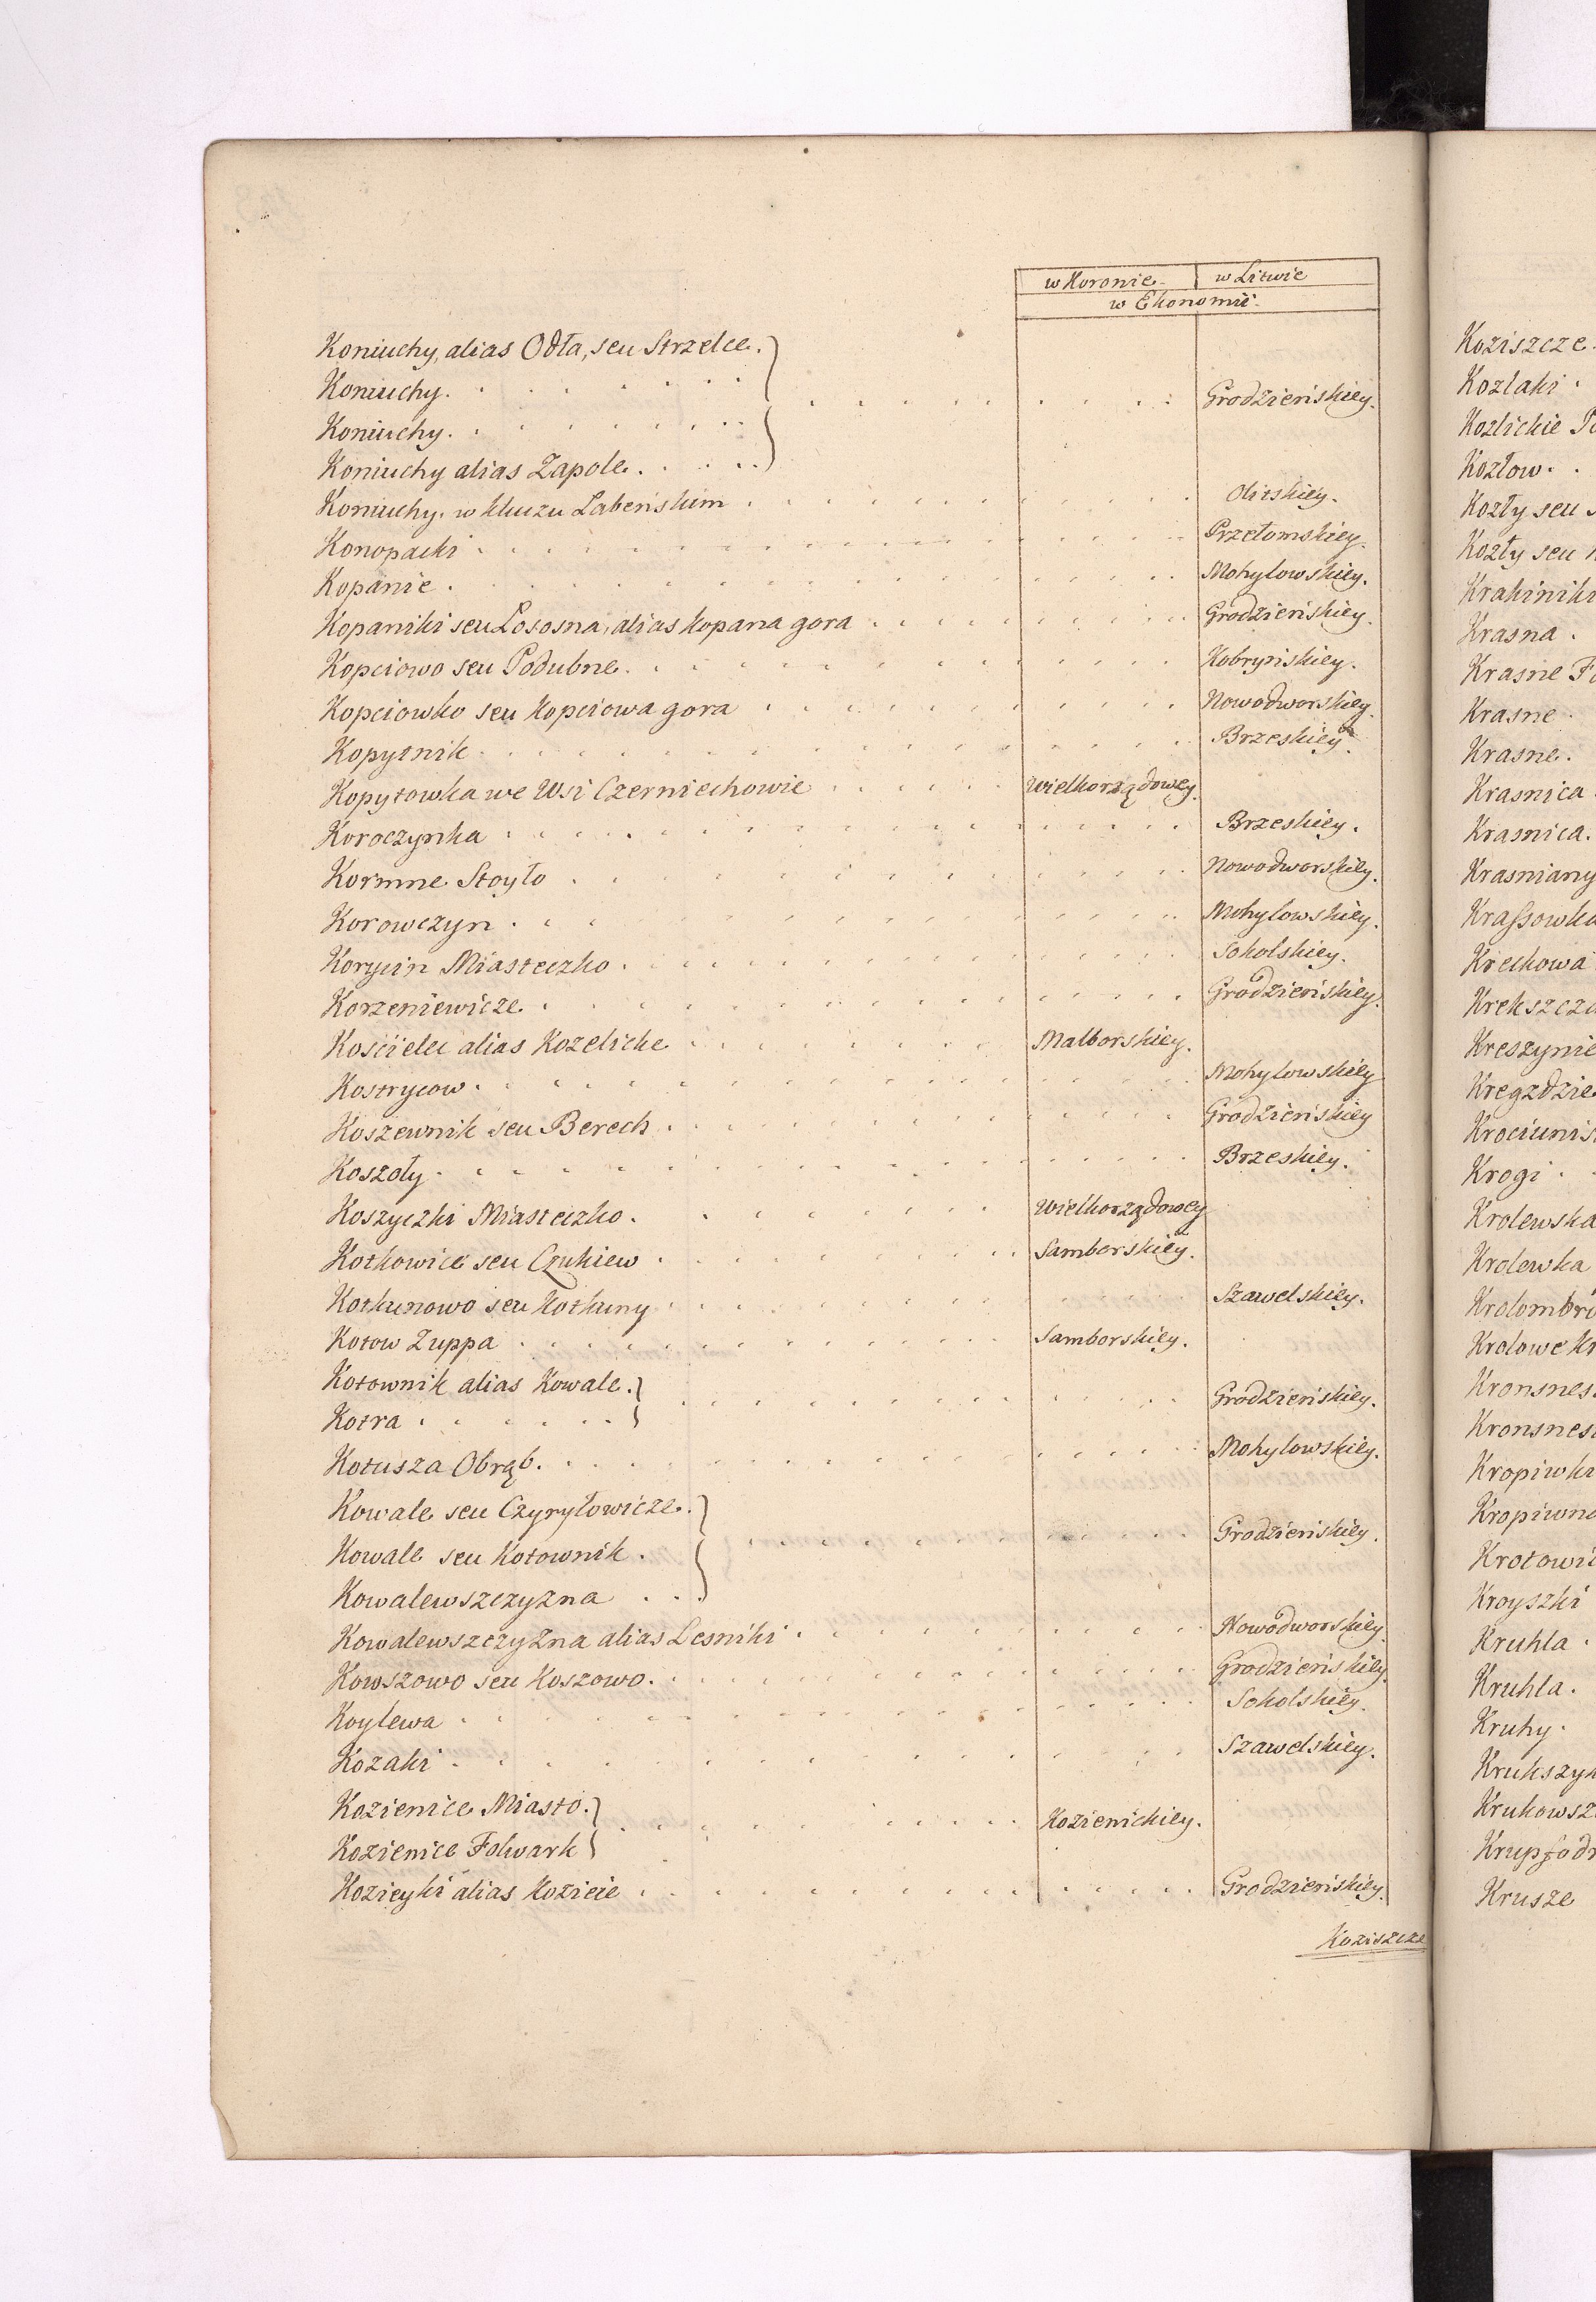 w Koronie. w Litwie
w Ekonomii
Koniuchy, alias Odła, seu Strzelce.
Koniuchy. Grodzieńskiey.
Koniuchy.
Koniuchy alias Zapole.
Koniuchy. w kluczu Labeńskim Olitskiey.
Konopacki Przełomskiey.
Kopanie. Mohylowskiey.
Kopaniki seu Lososna, alias kopana gora Grodzieńskiey.
Kopciowo seu Podubne. Kobryńskiey.
Kopciowko seu Kopciowa gora Nowodworskiey.
Kopytnik Brzeskiey.
Kopytowka we Wsi Czerniechowie Wielkorządowey.
Koroczynka Brzeskiey.
Kormne Stoyło Nowodworskiey.
Korowczyn Mohylowskiey.
Korycin Miasteczko. Sokolskiey.
Korzeniewicze. Grodzieńskiey.
Kościelec alias Kozelicke Malborskiey.
Kostrycow. Mohylowskiey
Koszewnik seu Berech. Grodzieńskiey
Koszoły. Brzeskiey.
Koszyczki Miasteczko. Wielkorządowey
Kotkowice seu Czukiew Samborskiey.
Kotkunowo seu Kotkuny Szawelskiey.
Kotow Zuppa Samborskiey.
Kotownik alias Kowale. Grodzieńskiey.
Kotra
Kotusza Obrąb. Mohylowskiey.
Kowale seu Czyryłowicze.
Kowale seu Kotownik. Grodzieńskiey.
Kowalewszczyzna
Kowalewszczyzna alias Lesniki Nowodworskiey.
Kowszowo seu Koszowo. Grodzieńskiey.
Koylewa Sokolskiey.
Kozaki Szawelskiey.
Kozienice Miasto. Kozienickiey.
Kozienice Folwark
Kozieyki alias Kozieie Grodzieńskiey.
Koziszcze
Koziszcze.
Kozlaki
Kozlickie
Kozłow.
Kozły seu
Kozły seu
Krakiniki
Krasna.
Krasne
Krasne
Krasne.
Krasnica
Krasnica.
Krasniany
Krechowa
Kreszynie
Krogi
Krolewska
Krolewka
Kruhla
Kruhla.
Kruhy.
Krusze